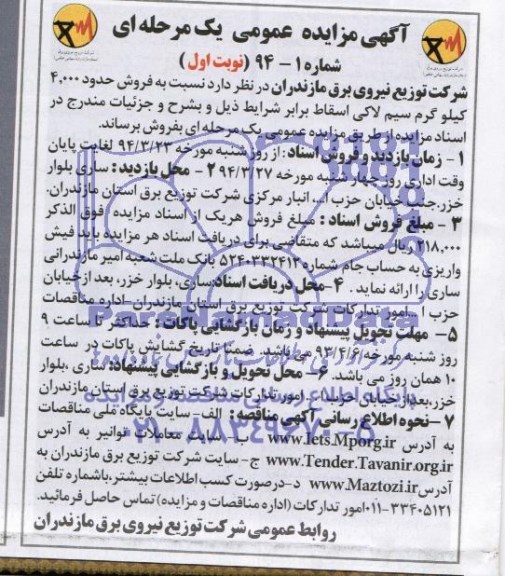 آگهی مزایده عمومی یک مرحله ای
شماره ۱ - ۹۴ (نوبت اول)
شرکت توزیع نیروی برق مازندران در نظر دارد نسبت به فروش حدود ۴,۰۰۰
کیلو گرم سیم لاکی اسقاط برابر شرایط ذیل و بشرح و جزئیات مندرج در
اسناد مزایده از طریق مزایده عمومی یک مرحله ای بفروش برساند.
۱ - زمان بازدید و فروش اسناد : از روز شنبه مورخه ۹۴/۳/۲۳ لغایت پایان
وقت اداری روز چهار شنبه مورخه ۹۴/۳/۲۷ ۲ - محل بازدید: ساری بلوار
خزر.جنب خیابان حزب ا... انبار مرکزی شرکت توزیع برق استان مازندران.
۳ - مبلغ فروش اسناد : مبلغ فروش هریک از اسناد مزایده فوق الذکر
۲۱۸.۰۰۰ ریال میباشد که متقاضی برای دریافت اسناد هر مزایده باید فیش
واریزی به حساب جام شماره ۵۲۴۰۳۳۲۴۱۲ بانک ملت شعبه امیر مازندرانی
ساری را ارائه نماید . ۴-محل دریافت اسناد ساری، بلوار خزر، بعد از خیابان
حزب ا... امور تدارکات شرکت توزیع برق استان مازندران-اداره مناقصات
۵- مهلت تحویل پیشنهاد و زمان بازگشایی پاکات : حداکثر تا ساعت ۹
روز شنبه مورخه ۹۴/۴/۶ می باشد. ضمنا تاریخ گشایش پاکات در ساعت
۱۰ همان روز می باشد. ۶- محل تحویل و بازگشایی پیشنهاد: ساری ،بلوار
خزر،بعداز خیابان حزب ا... امور تدارکات شرکت توزیع برق استان مازندران
۷-نحوه اطلاع رسانی آگهی مناقصه: الف- سایت پایگاه ملی مناقصات
به آدرس www.Iets.Mporg.ir ب- سایت معاملات توانیر به آدرس
www.Tender.Tavanir.org.ir ج- سایت شرکت توزیع برق مازندران به
آدرس www.Maztozi.ir د-درصورت کسب اطلاعات بیشتر،باشماره تلفن
۰۱۱-۳۳۴۰۵۱۲۱ امور تدارکات (اداره مناقصات و مزایده) تماس حاصل فرمائید.
روابط عمومی شرکت توزیع نیروی برق مازندران
ParsNamadData
پایگاه اطلاع رسانی مناقصه و مزایده
۰۲۱-۸۸۳۴۹۶۷۰-۵